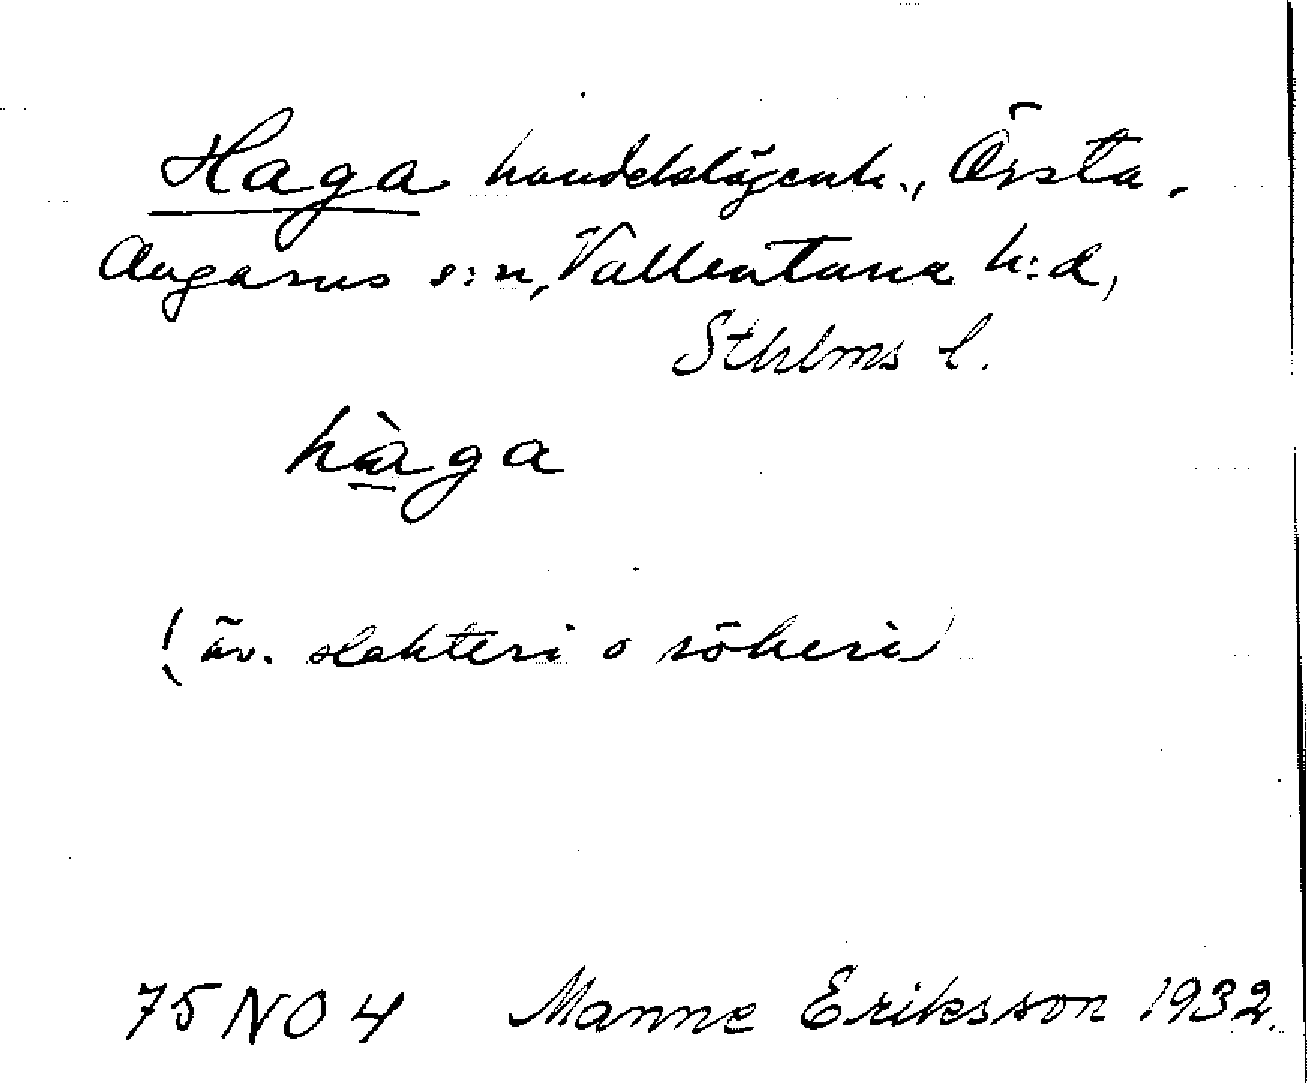 Haga handelslägenh., Örsta,
Angarns s:n, Vallentuna h:d,
Sthlms l.
hàga
(äv. slakteri o rökeri)
75 NO 4 Manne Eriksson 1932.